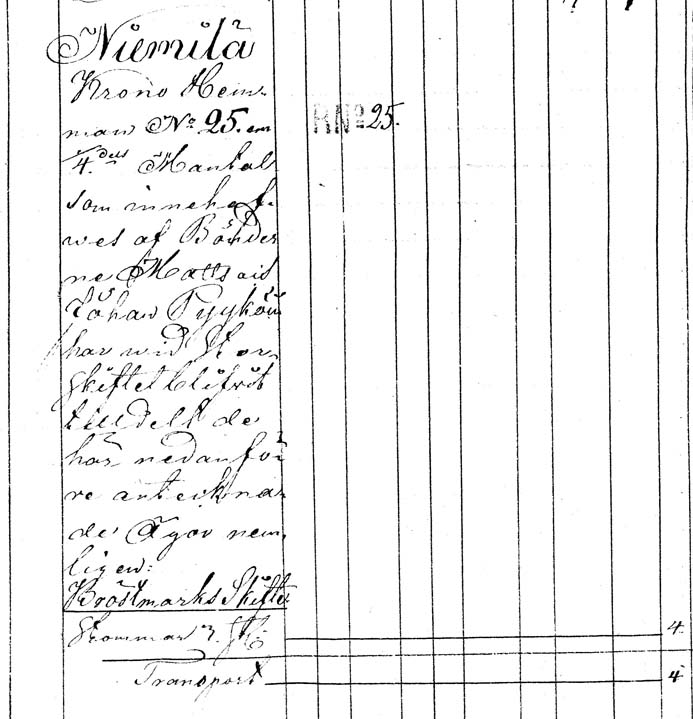 Niemilä
Krono Hem-
man No 25. em
/4. dels Mantal
som innehaf-
wes af Bönder
ne Matts och
Johan Pyykön
har wid Stor-
skiftet blifvit
tilldelt de
här nedanfö
re anteckna
de Ägor nem-
ligen:
RNo 25.
Brostmarks Skifte
4.
Transport 4